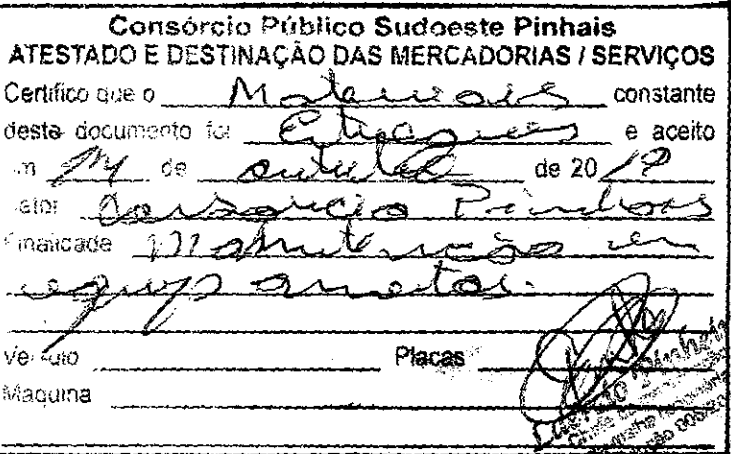 Consórcio Público Sudoeste Pinhais
ATESTADO E DESTINAÇÃO DAS MERCADORIAS / SERVIÇOS
Certifico que o Materiais constante
deste documento foi Entregues e aceito
em de outubro de 20
Setor Consórcio Pinhais
Finalidade Manutenção em
equipamentos.
Veículo Placas
Maquina